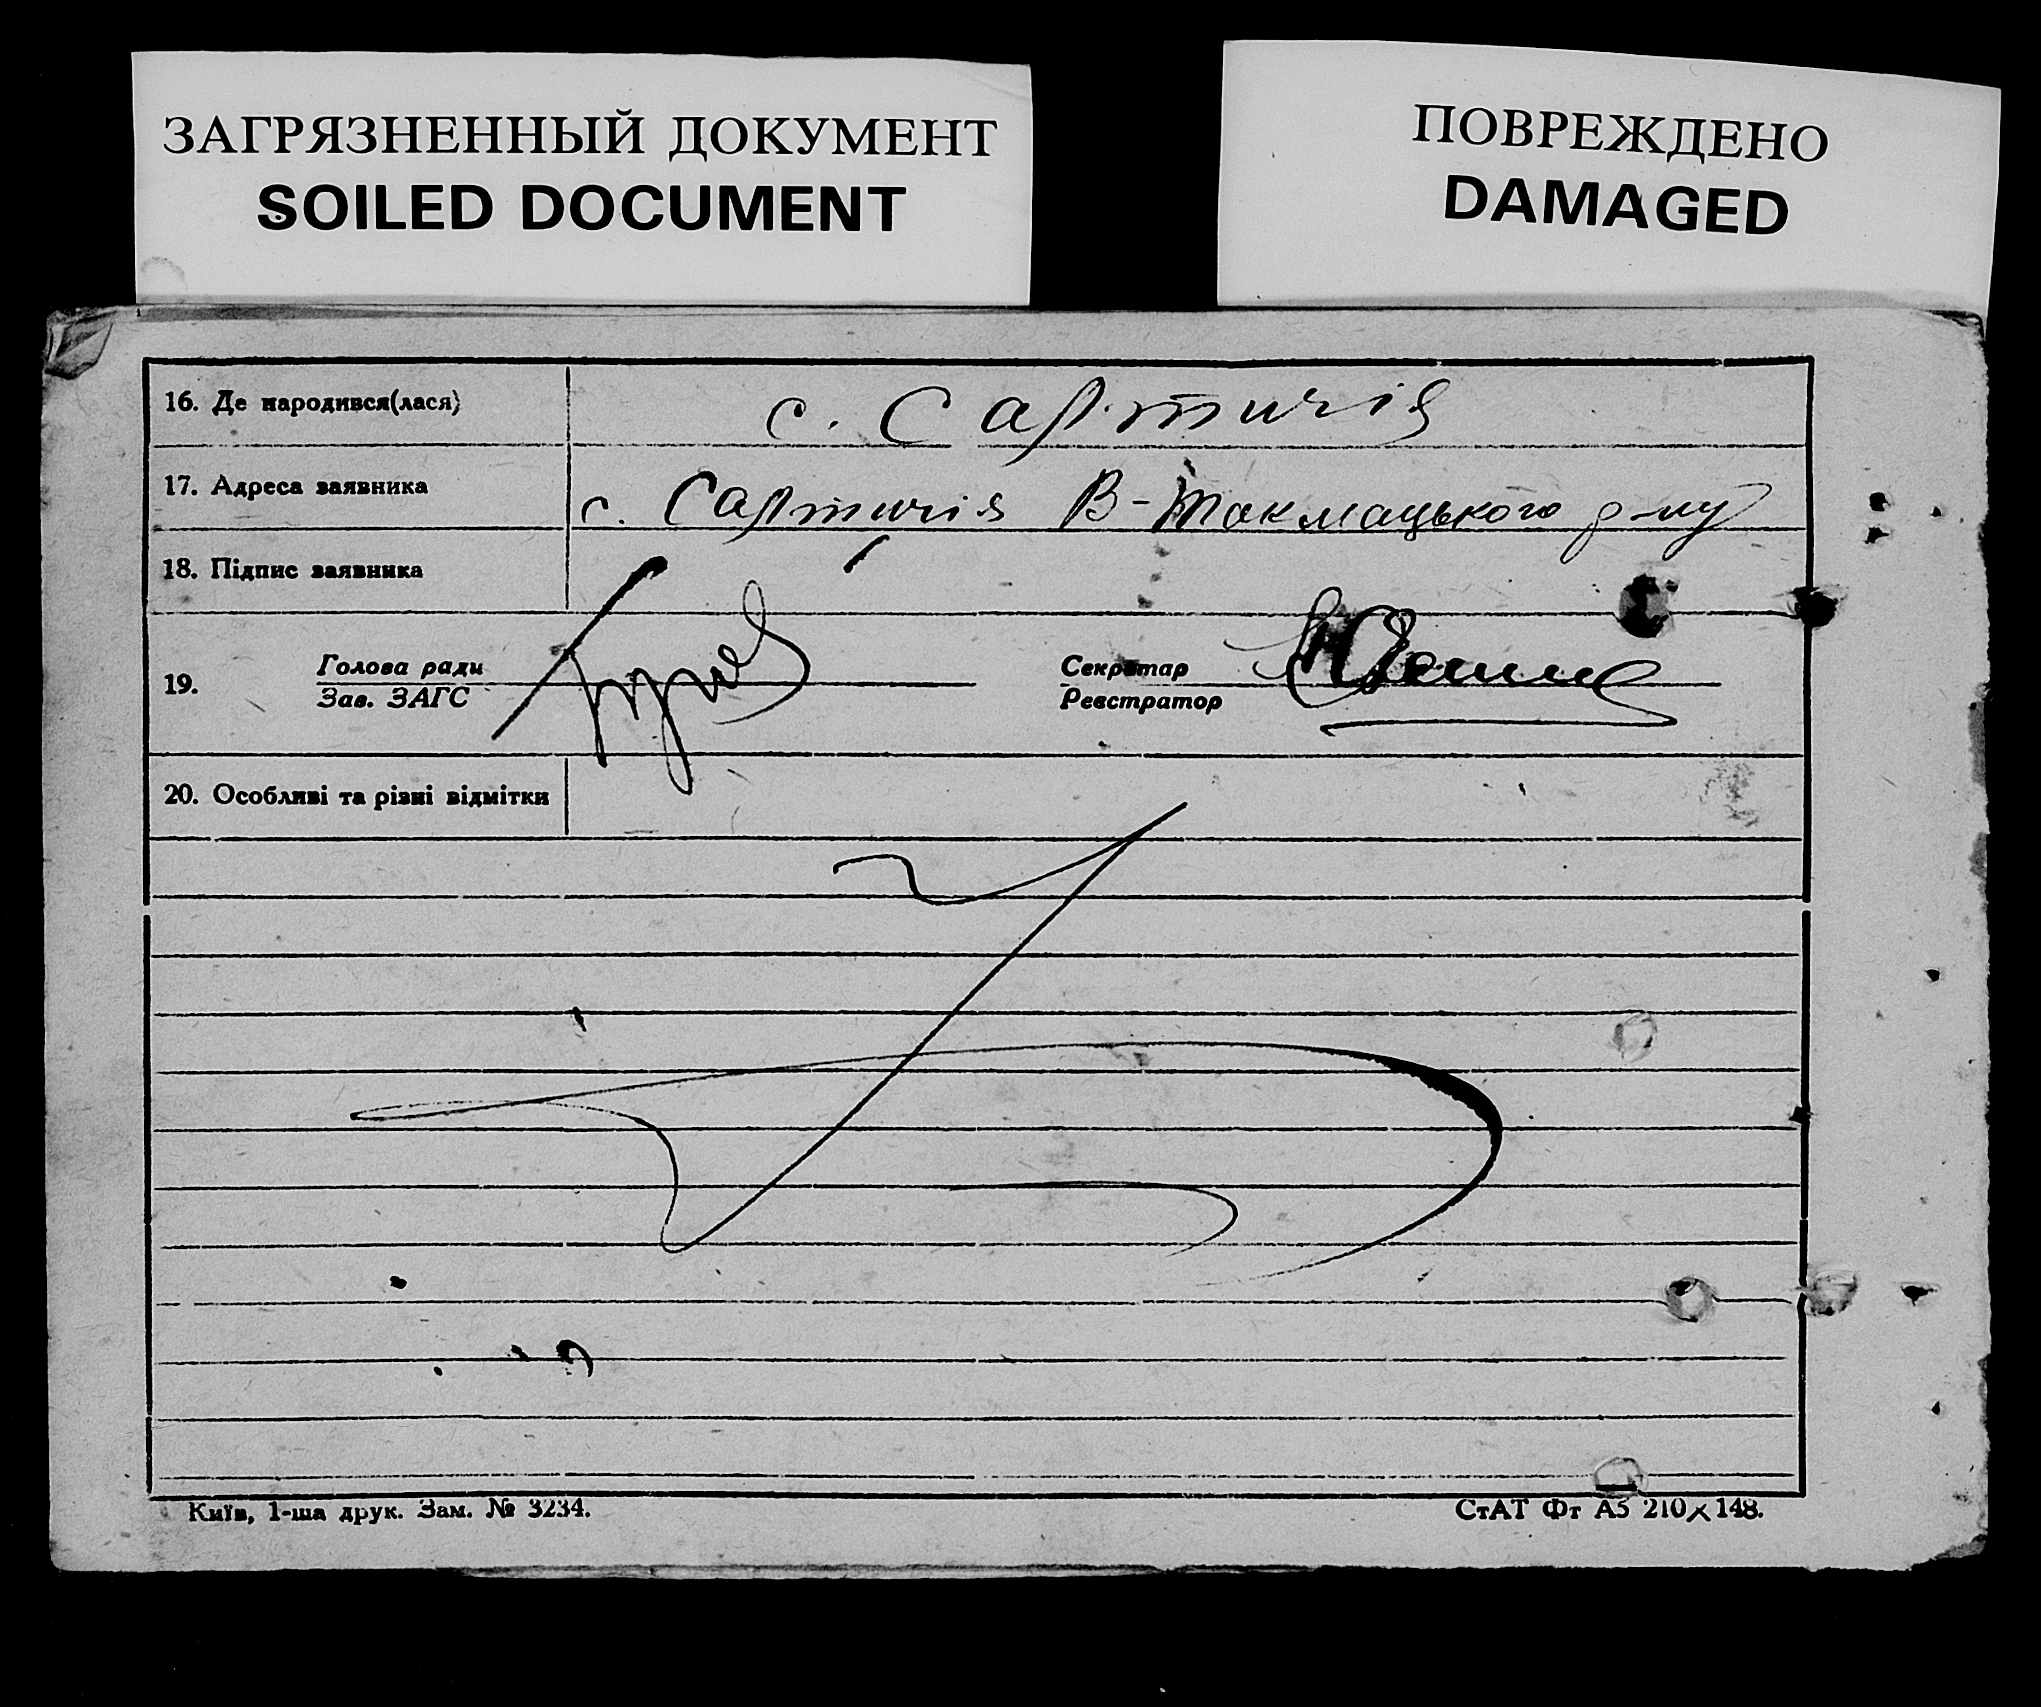 ЗАГРЯЗНЕННЫЙ ДОКУМЕНТ
SOILED DOCUMENT
ПОВРЕЖДЕНО
DAMAGED
16. Де народився(лася) с. Сартичія
17. Адреса заявника с. Сартичія В-Токмацького р-ну
18. Підпис заявника
19. Голова ради Секретар
Зав. ЗАГС Реєстратор
20. Особливі та різні відмітки
Київ, 1-ша друк. Зам. № 3234. СтАТ Фт А5 210×148.